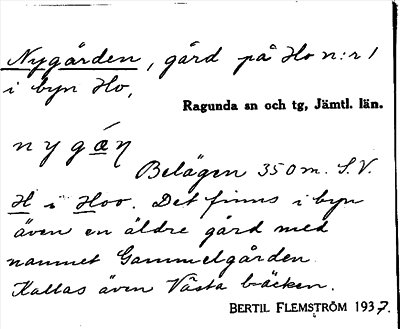 Nygården, gård på Ho n:r 1
i byn Ho,
Ragunda sn och tg, Jämtl. län.
n y g ǽ η
Belägen 350 m. S.V.
H i Hoo. Det finns i byn
även en äldre gård med
namnet Gammelgården.
Kallas även Västa bäcken.
BERTIL FLEMSTRÖM 1937.